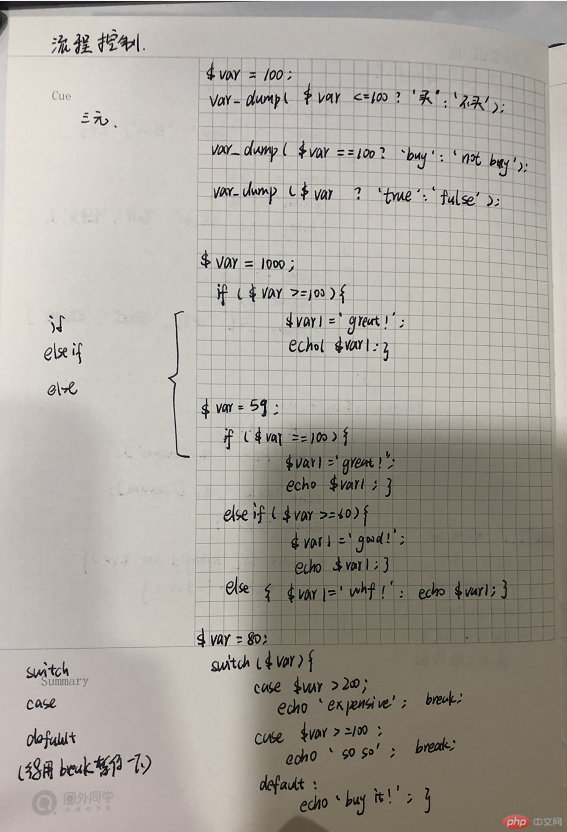 流程控制.
Cue
三元.
$var = 100;
var_dump( $var <=100 ? '买' : '不买');
var_dump( $var ==100 ? 'buy' : 'not buy');
var_dump ($var ? 'true' : 'false' );
$var = 1000;
if ($var >=100){
$var1 = 'great!';
echo( $var1; }
if
else if
else
$var = 59;
if ($var ==100){
$var1 = 'great!';
echo $var1; }
else if ($var >=60){
$var1 = 'good!';
echo $var1; }
else { $var1 = 'whf!'; echo $var1; }
$var = 80;
switch
Summary
case
default
switch ($var){
case $var >200;
echo 'expensive'; break;
case $var >=100;
echo 'so so'; break;
default:
echo 'buy it!'; }
圈外同学
php 中文网